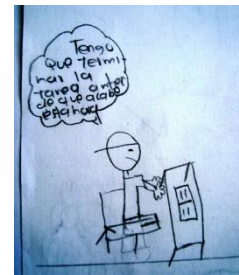 Tengo
que termi
nar la
tarea antes
de que acabe
esta hora